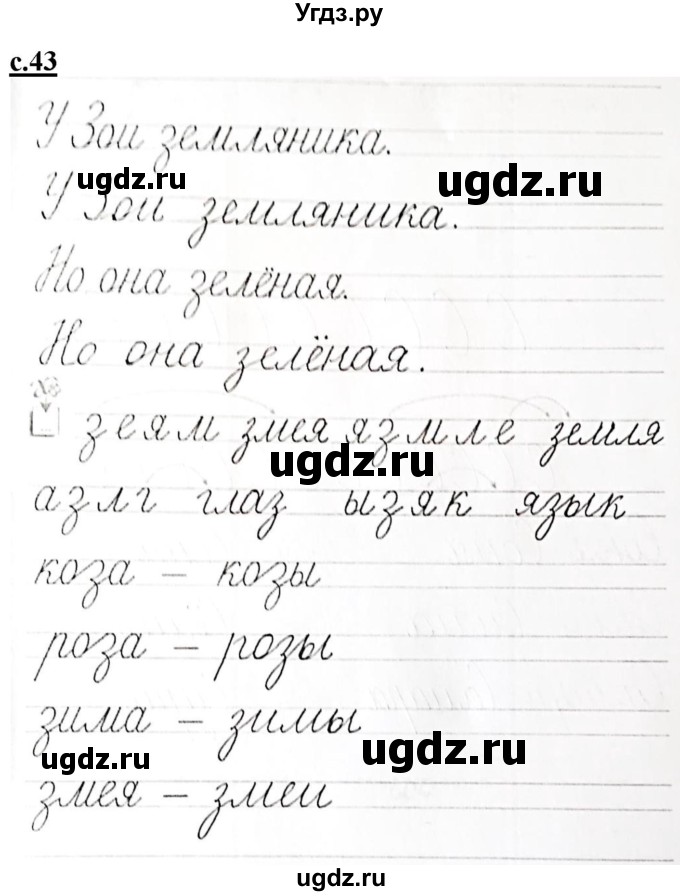 Угдз.ру
с.43
У Зои земляника.
ugdz.ru
ugdz.ru
У Зои земляника.
Но она зелёная.
Но она зелёная.
зеям змея язмле земля
ugdz.ru
азлг глаз ызяк язык
коза – козы
роза – розы
зима – зимы
ugdz.ru
ugdz.ru
змея – змеи
ugdz.ru